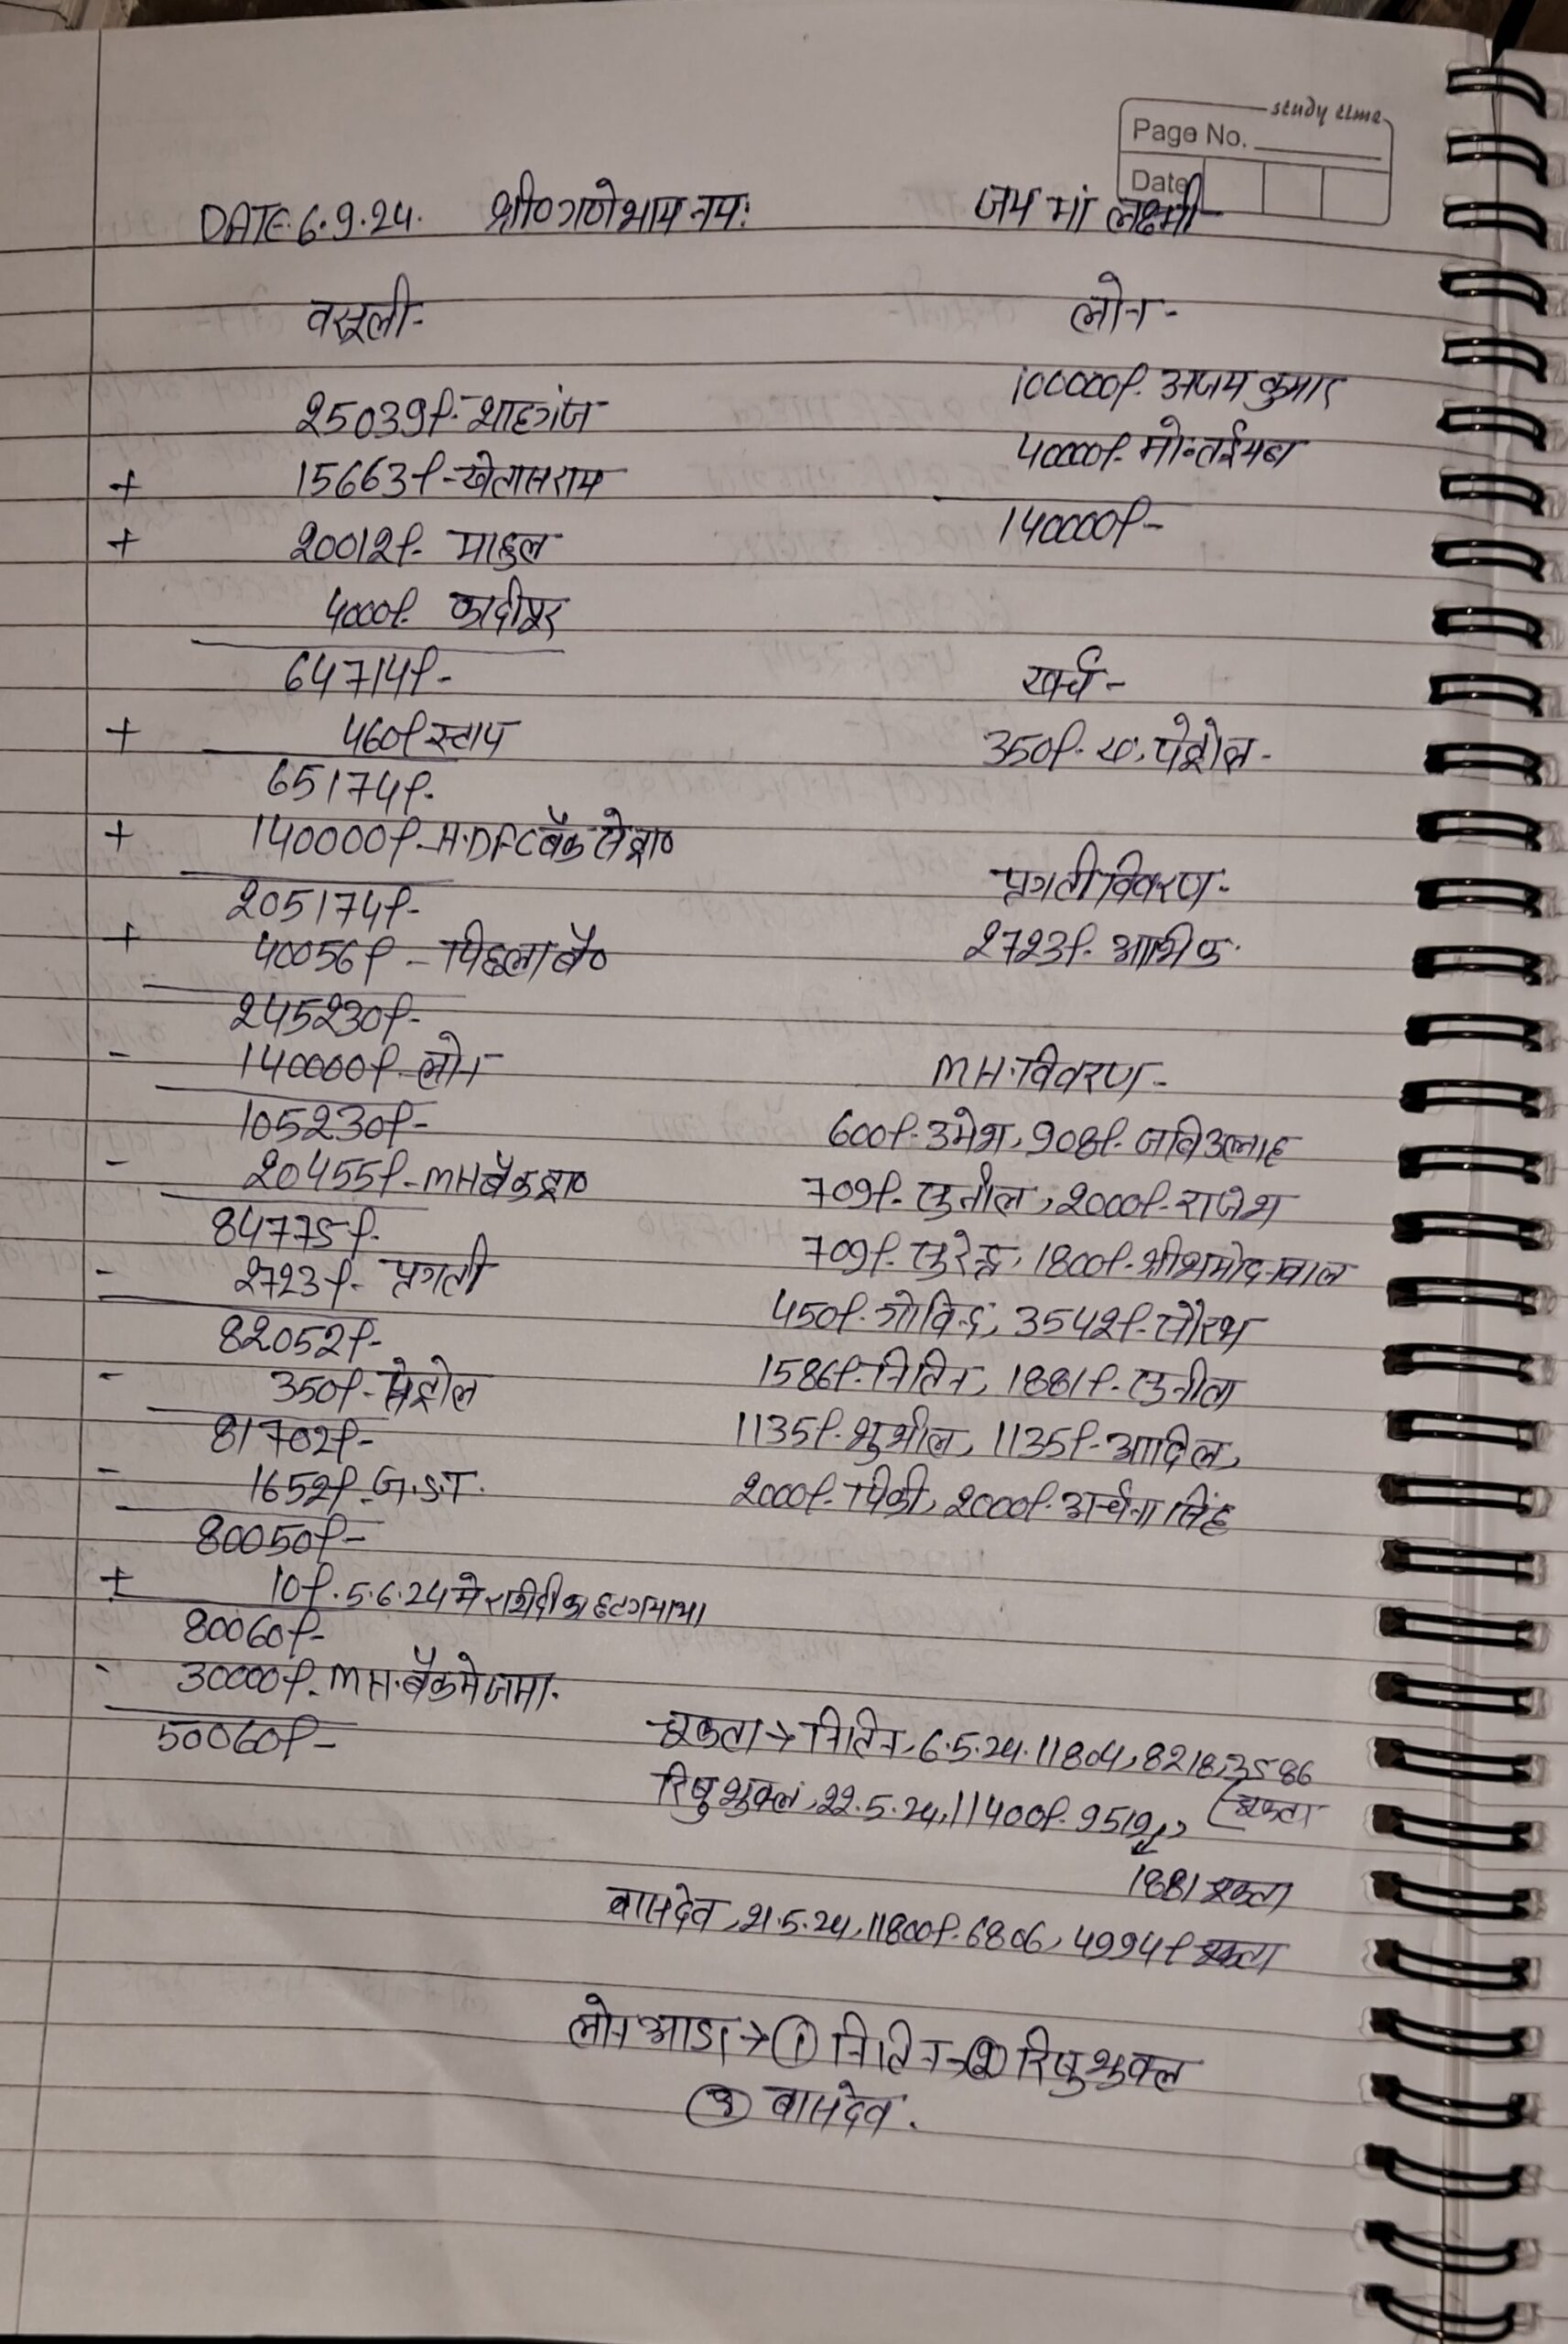 study time
Page No.
Date
DATE. 6.9.24. श्री० गणेशाय नमः जय मां लक्ष्मी-
वसूली- लोन-
100000f. अजय कुमार
25039f. शाहगंज
40000f. मो॰ तईयबा
+ 15663f - खेतासराय
140000f-
+ 20012f. माहुल
4000f. कादीपुर
64714f-
खर्च-
+ 460f स्टाप
350f. रु. पेट्रोल-
65174f.
+ 140000f - H.DFC बैंक से प्रा०
प्रगती विवरण-
205174f-
2723f. आशीफ.
+ 40056f - पिछला बै०
245230f-
- 140000f. लोन
MH. विवरण-
105230f-
600f. उमेश, 908f. जबिउल्लाह
- 20455f - MH बैंक प्रा०
709f. सुनील, 2000f. राजेश
84775f.
709f. सुरेन्द्र, 1800f.
- 2723f. प्रगती
450f. गोविन्द, 3542f. सौरभ
82052f-
1586f. नितिन, 1881f. सुनीता
- 350f - पेट्रोल
1135f. शुशील, 1135f. आदिल,
81702f-
- 1652f. G.S.T.
2000f. पिंकी, 2000f. अर्चना सिंह
80050f-
+ 10f. 5.6.24 मे
80060f-
- 30000f. MH. बैंक मे जमा.
50060f-
चुकता → नितिन, 6.5.24. 11804, 8218, 3586
रिषु शुक्ल, 22.5.24, 11400f. 9519,, चुकता
1881 चुकता
वासदेव, 21.5.24, 11800f. 6806, 4994f चुकता
लोन आडर → ① नितिन - ② रिषु शुक्ल
③ वासदेव.